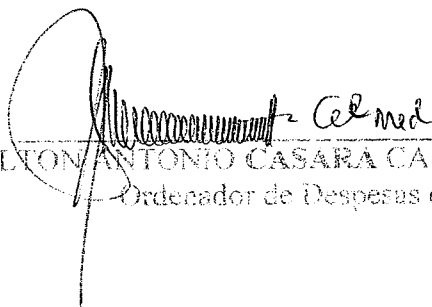 Cel Med
LTON ANTONIO CASARA CA
Ordenador de Despesas